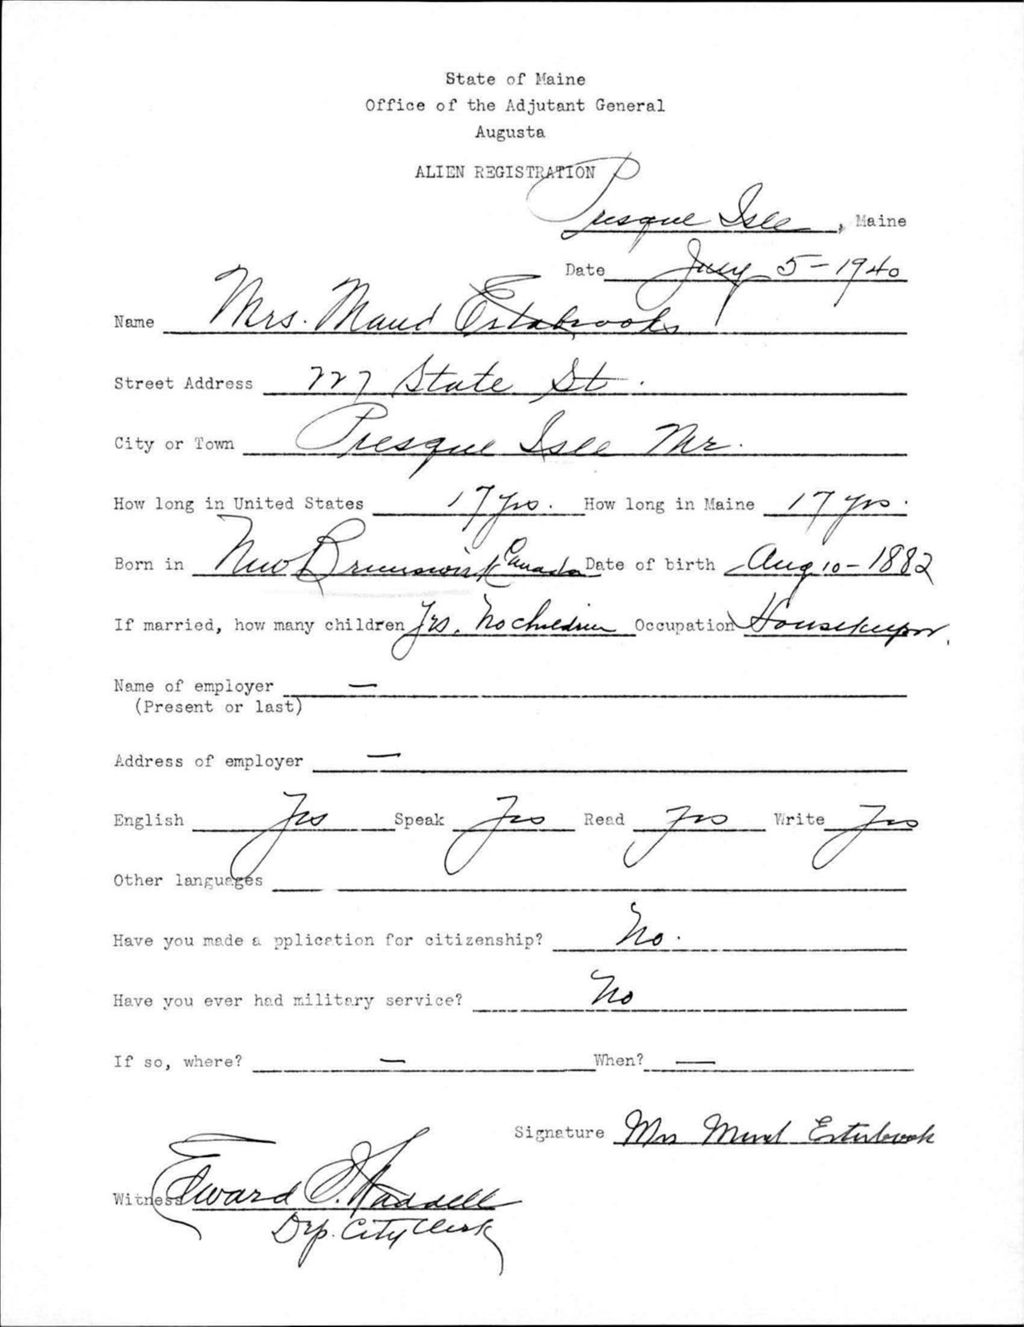 State of Maine
Office of the Adjutant General
Augusta
ALIEN REGISTRATION
Presque Isle, Maine
Date July 5-1940
Name Mrs. Maud Estabrooks
Street Address 727 State St.
City or Town Presque Isle Me.
How long in United States 17 yrs. How long in Maine 17 yrs.
Born in New Brunswick Canada Date of birth Aug 10-1882
If married, how many children Yes. No children Occupation Housekeeper.
Name of employer —
(Present or last)
Address of employer —
English Yes Speak Yes Read Yes Write Yes
Other languages
Have you made a pplication for citizenship? No.
Have you ever had military service? No
If so, where? — When? —
Signature Mrs Maud Estabrook
Witness Edward S. Waddell
Dep. City Clerk